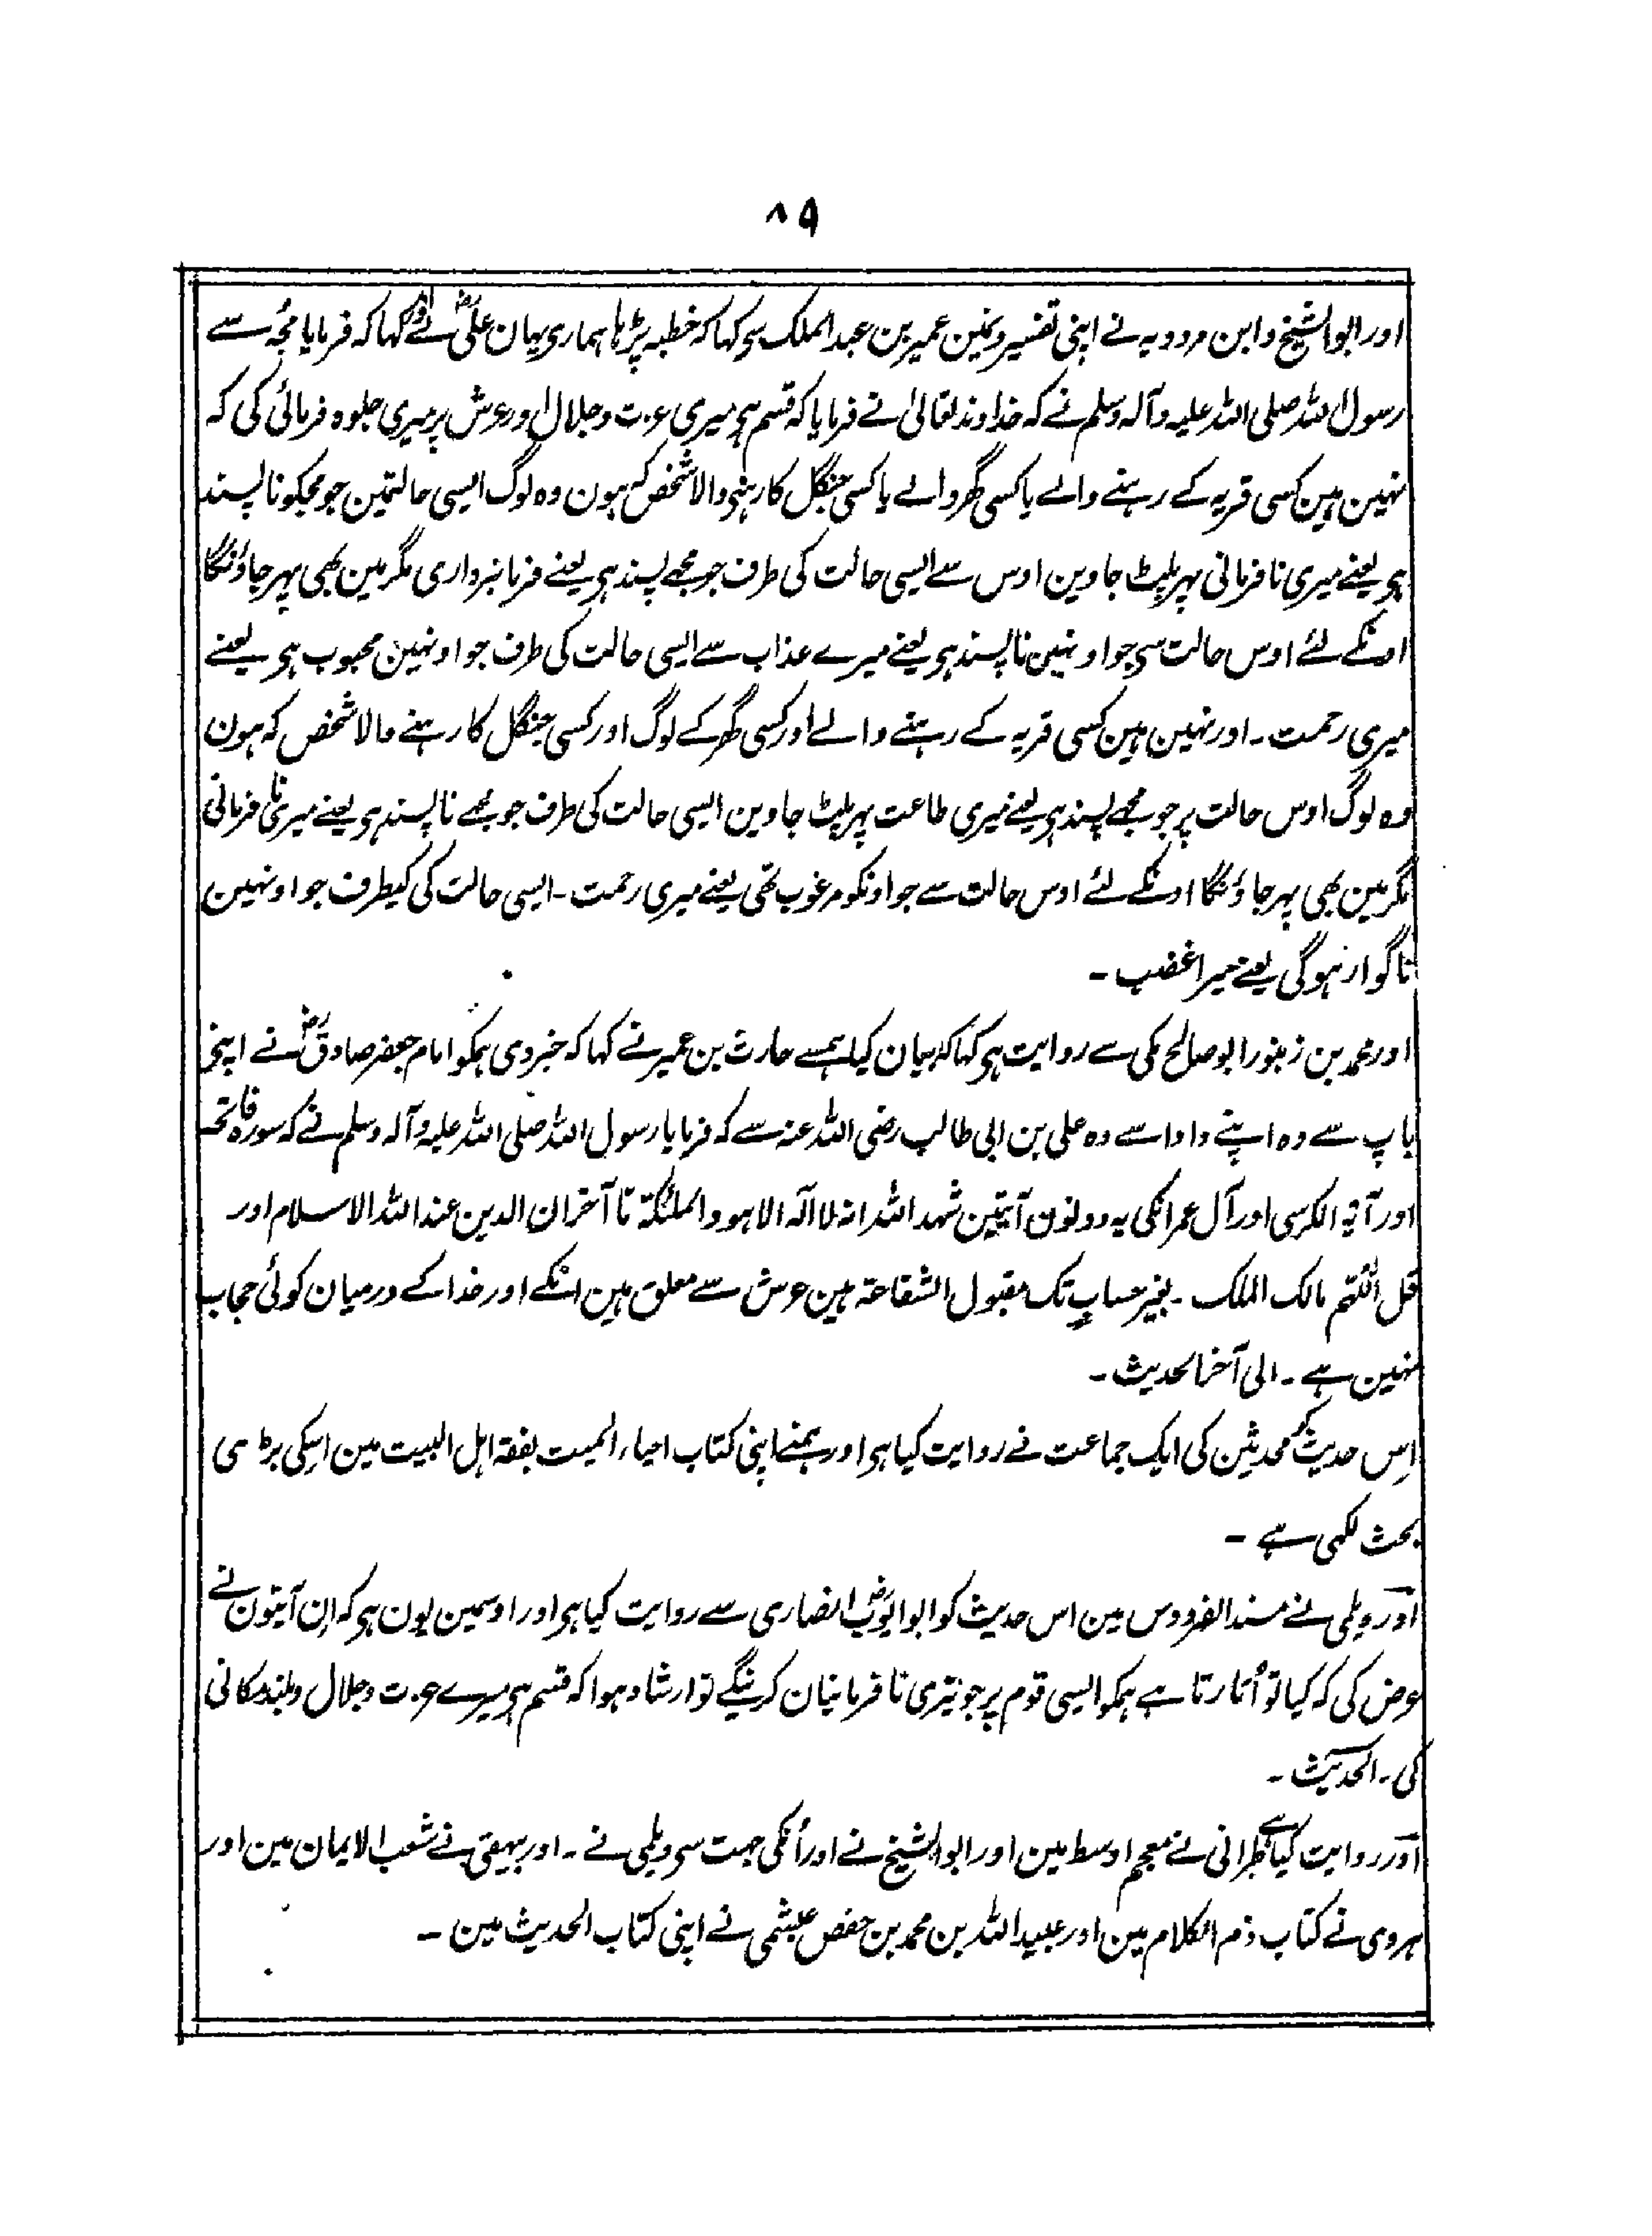 ۸۹
اور ابوالشیخ و ابن مردویہ نے اپنی تفسیر ونمین عمیر بن عبدالملک سی کہا کہ خطبہ پڑہا ہماری یہان علیؓ نے اور کہا کہ فرمایا مجہ سے
رسول اللہ صلی اللہ علیہ وآلہ وسلم نے کہ خداوند تعالیٰ نے فرمایا کہ قسم ہی میری عزت وجلال اور عرش پر میری جلوہ فرمائی کی کہ
نہین ہین کسی قریہ کے رہنے والے یا کسی گھر والے یا کسی جنگل کا رہنی والا شخص کہ ہون وہ لوگ ایسی حالتمین جو مجکو ناپسند
ہی یعنے میری نافرمانی پہر پلٹ جاوین اوس سے ایسی حالت کی طرف جو مجھے پسند ہی یعنے فرمانبرداری مگر مین بھی پہر جاؤنگا
اونکے لئے اوس حالت سی جو اونہین ناپسند ہی یعنے میرے عذاب سے ایسی حالت کی طرف جو اونہین محبوب ہی یعنے
میری رحمت ۔ اور نہین ہین کسی قریہ کے رہنے والے اور کسی گھر کے لوگ اور کسی جنگل کا رہنے والا شخص کہ ہون
وہ لوگ اوس حالت پر جو مجھے پسند ہی یعنے میری طاعت پہر پلٹ جاوین ایسی حالت کی طرف جو مجھے ناپسند ہی یعنے میری نافرمانی
مگر مین بھی پہر جاؤنگا اونکے لئے اوس حالت سے جو اونکو مرغوب تھی یعنے میری رحمت ۔ ایسی حالت کی کیطرف جو اونہین
ناگوار نہوگی یعنے میرا غضب ۔
اور محمد بن زنبور ابو صالح مکی سے روایت ہی کہا کہ بیان کیا ہمسے حارث بن عمیر نے کہا کہ خبر دی ہمکو امام جعفر صادقؓ نے اپنی
باپ سے وہ اپنے دادا سے وہ علی بن ابی طالب رضی اللہ عنہ سے کہ فرمایا رسول اللہ صلی اللہ علیہ وآلہ وسلم نے کہ سورہ فاتحہ
اور آیۃ الکرسی اور آل عمرانکی یہ دونون آیتین شہد اللہ انہ لا الہ الا ہو والملئکۃ تا آخر ان الدین عند اللہ الاسلام اور
قل اللّٰہم مالک الملک ۔ بغیر حساب تک مقبول الشفاعۃ ہین عرش سے معلق ہین انکے اور خدا کے درمیان کوئی حجاب
نہین ہے ۔ الی آخر الحدیث ۔
اِس حدیث کو محدثین کی ایک جماعت نے روایت کیا ہی اور ہمنے اپنی کتاب احیاء المیت بفقۃ اہل البیت مین اسکی بڑی سی
بحث لکھی ہے ۔
اور دیلمی نے مسند الفردوس مین اس حدیث کو ابوایوبؓ انصاری سے روایت کیا ہی اور اوسمین یون ہی کہ اِن آیتون نے
عرض کی کہ کیا تو اُتارتا ہے ہمکو ایسی قوم پر جو تیری نافرمانیان کرینگے تو ارشاد ہوا کہ قسم ہی میرے عزت وجلال وبلند مکانی
کی ۔ الحدیث ۔
اور روایت کیا ہے طبرانی نے معجم اوسط مین اور ابوالشیخ نے اور اُنکی جہت سی دیلمی نے ۔ اور بیہقی نے شعب الایمان مین اور
ہروی نے کتاب ذم الکلام مین اور عبیداللہ بن محمد بن حفص عیشمی نے اپنی کتاب الحدیث مین ۔